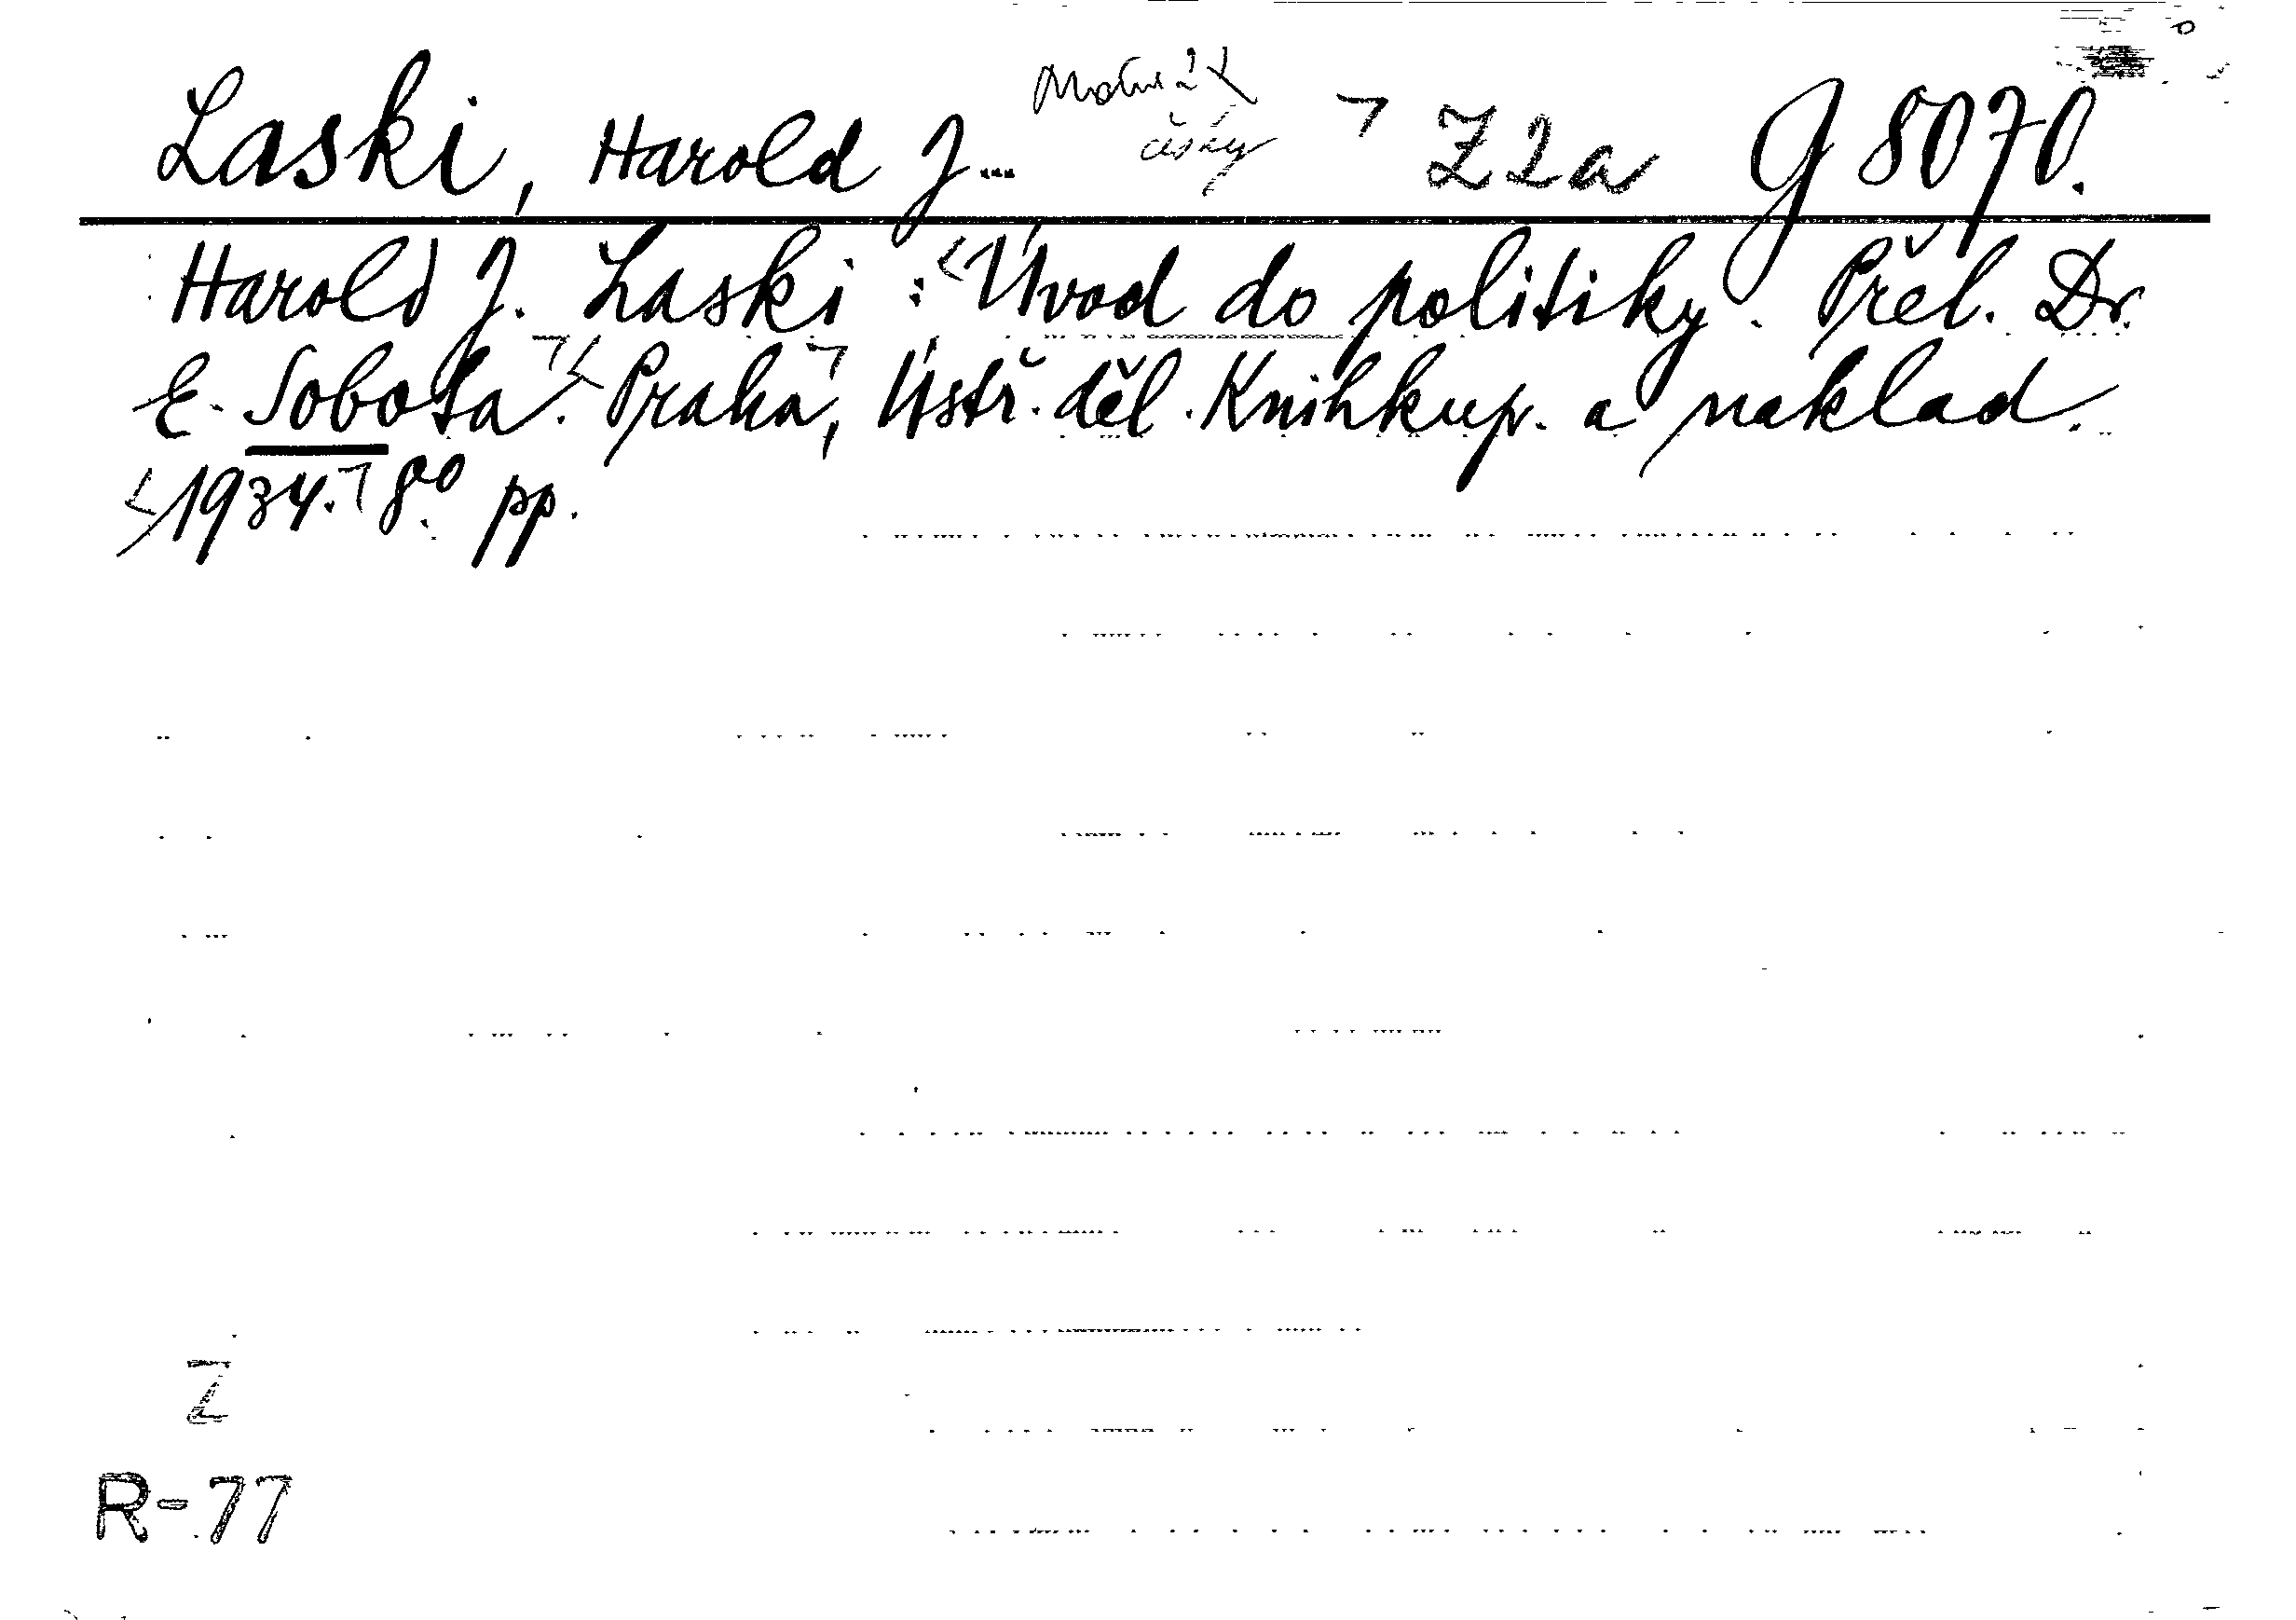 Laski, Harold J... česky Z 2a G 8070.
Harold J. Laski: Úvod do politiky. Přel. Dr.
E. Sobota. Praha, Ústř. děl. Knihkup. a naklad.
1934. 8° pp.
Z
R-77